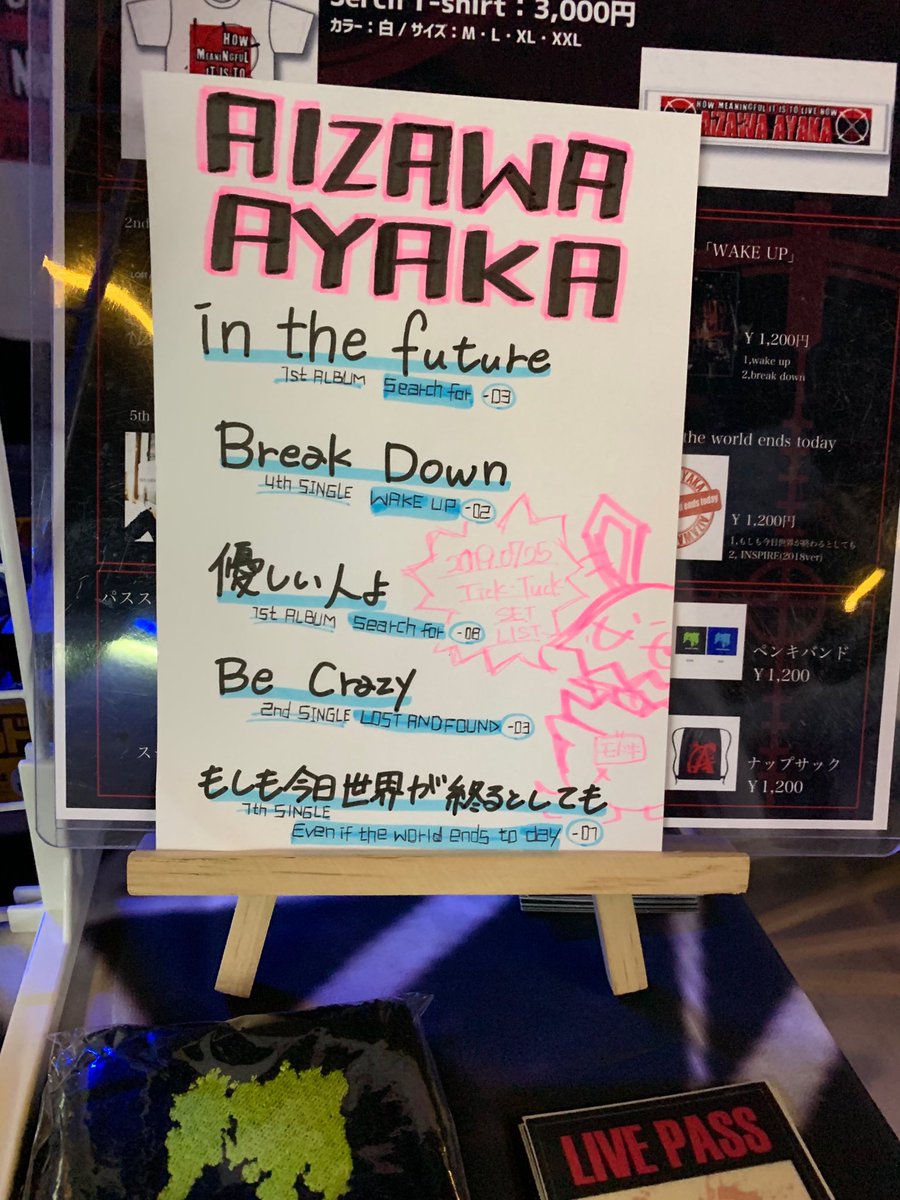 Serch T-shirt：3,000円
カラー：白 / サイズ：M・L・XL・XXL
HOW
MEANINGFUL
IT IS TO
HOW MEANINGFUL IT IS TO LIVE NOW
AIZAWA AYAKA
AIZAWA
AYAKA
in the future
1st ALBUM Search for -03
Break Down
4th SINGLE WAKE UP -02
優しい人よ
1st ALBUM Search for -08
Be Crazy
2nd SINGLE LOST AND FOUND -03
もしも今日世界が終るとしても
7th SINGLE
Even if the world ends to day -01
2019.07.25
Tick-Tuck
SET
LIST
モトキ
2nd
5th
パスス
ス
「WAKE UP」
¥ 1,200円
1,wake up
2,break down
the world ends today
¥ 1,200円
1,もしも今日世界が終わるとしても
2, INSPIRE(2018ver)
ペンキバンド
¥1,200
ナップサック
¥1,200
LIVE PASS